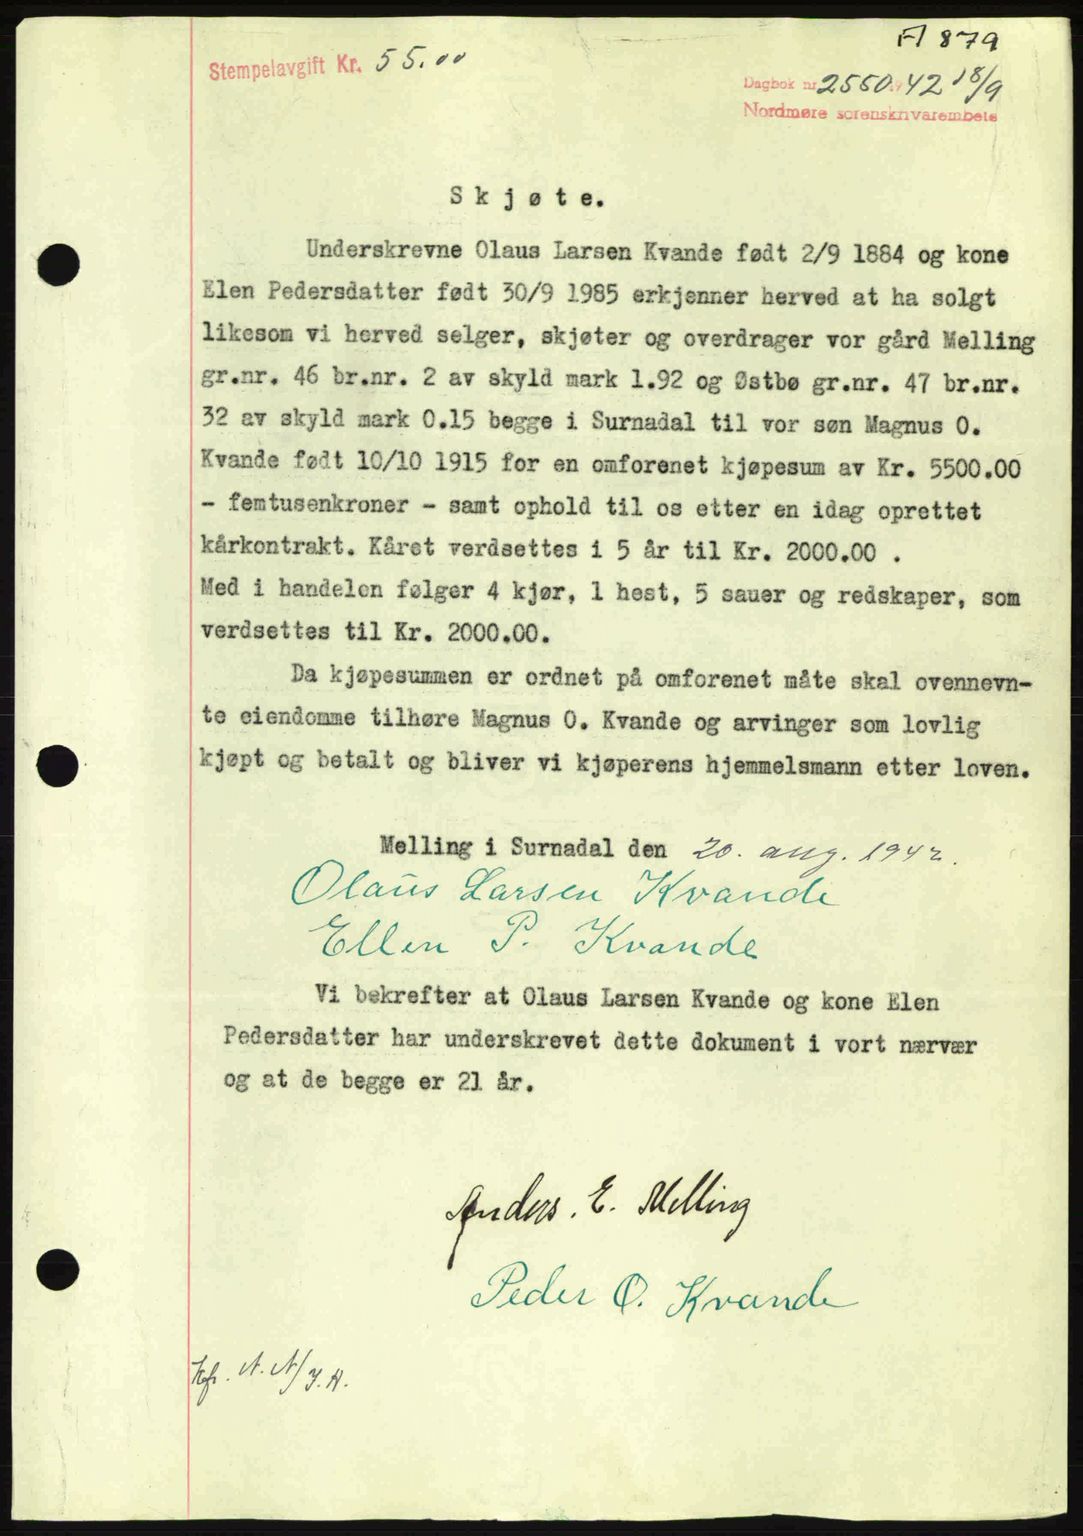 A 879
Stempelavgift Kr. 55.00
Dagbok nr 2550. 42 18/9
Nordmøre sorenskrivarembete
Skjøte.
Underskrevne Olaus Larsen Kvande født 2/9 1884 og kone
Elen Pedersdatter født 30/9 1985 erkjenner herved at ha solgt
likesom vi herved selger, skjøter og overdrager vor gård Melling
gr.nr. 46 br.nr. 2 av skyld mark 1.92 og Østbø gr.nr. 47 br.nr.
32 av skyld mark 0.15 begge i Surnadal til vor søn Magnus O.
Kvande født 10/10 1915 for en omforenet kjøpesum av Kr. 5500.00
- femtusenkroner - samt ophold til os etter en idag oprettet
kårkontrakt. Kåret verdsettes i 5 år til Kr. 2000.00 .
Med i handelen følger 4 kjør, 1 hest, 5 sauer og redskaper, som
verdsettes til Kr. 2000.00.
Da kjøpesummen er ordnet på omforenet måte skal ovennevn-
te eiendomme tilhøre Magnus O. Kvande og arvinger som lovlig
kjøpt og betalt og bliver vi kjøperens hjemmelsmann etter loven.
Melling i Surnadal den 20. aug. 1942.
Olaus Larsen Kvande
Ellen P. Kvande
Vi bekrefter at Olaus Larsen Kvande og kone Elen
Pedersdatter har underskrevet dette dokument i vort nærvær
og at de begge er 21 år.
Anders. E. Melling
Peder O. Kvande